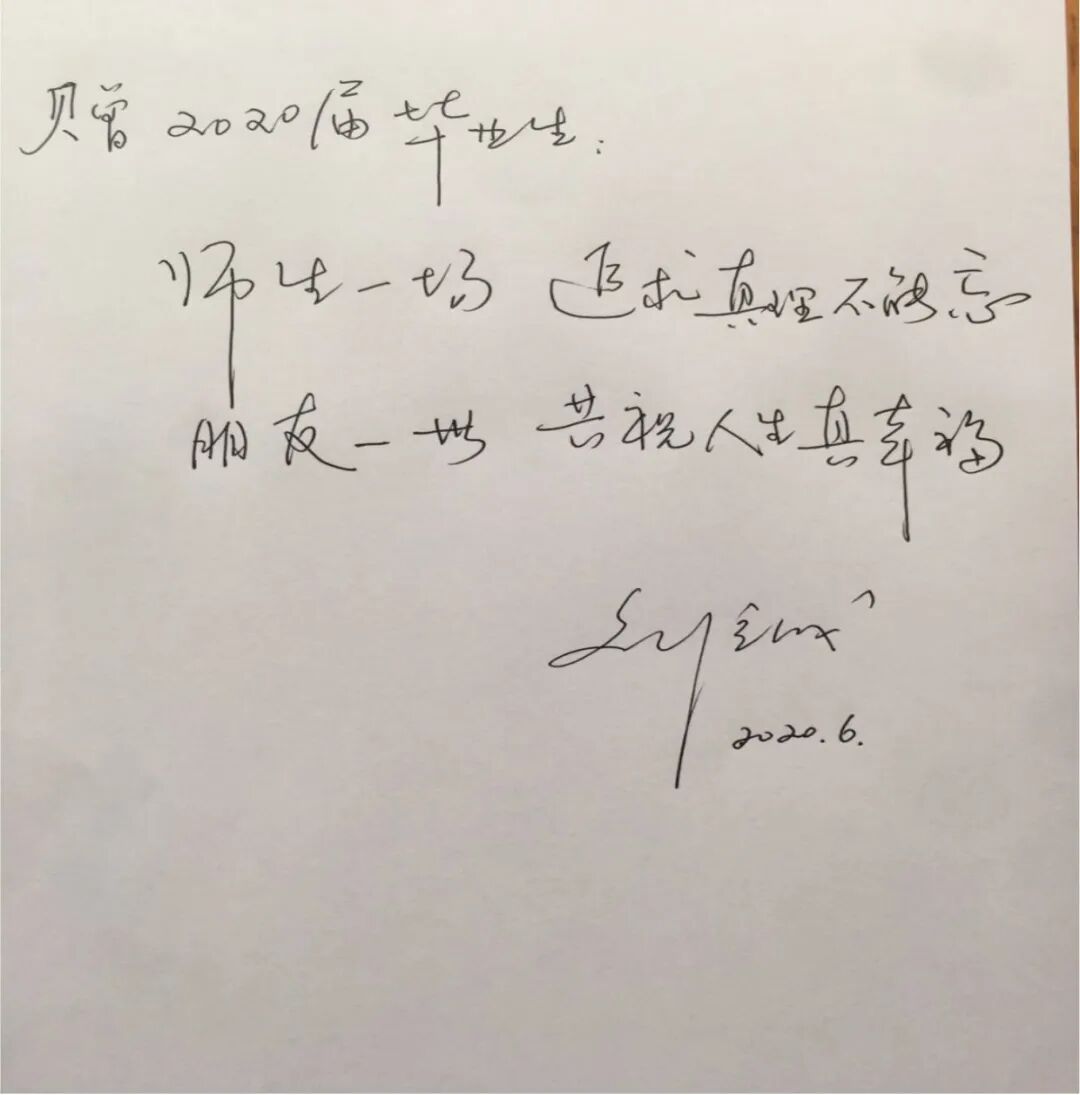 赠2020届毕业生:
师生一场 追求真理不能忘
朋友一世 共祝人生真幸福
刘
2020.6.